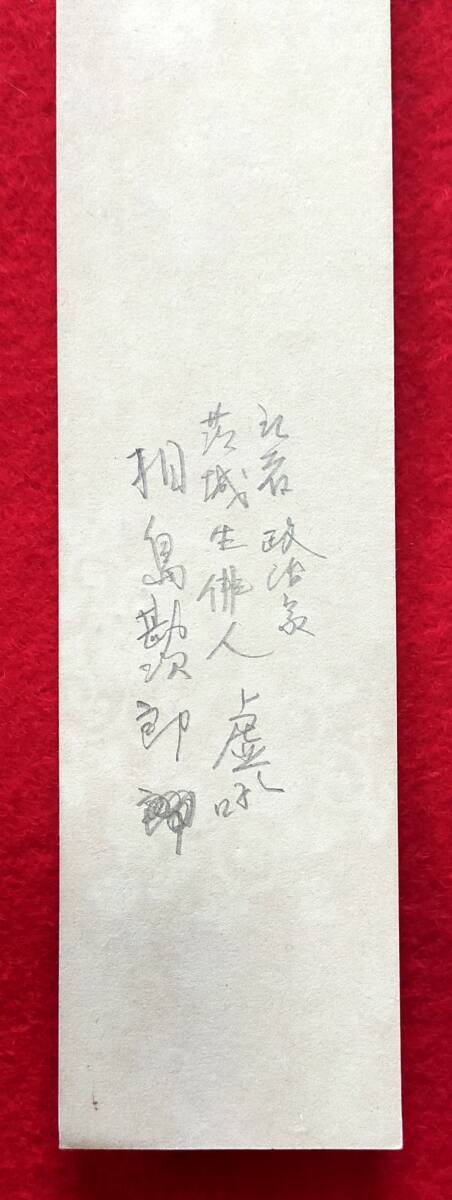 記者 政治家
茨城生俳人 虚吼
相島勘次郎